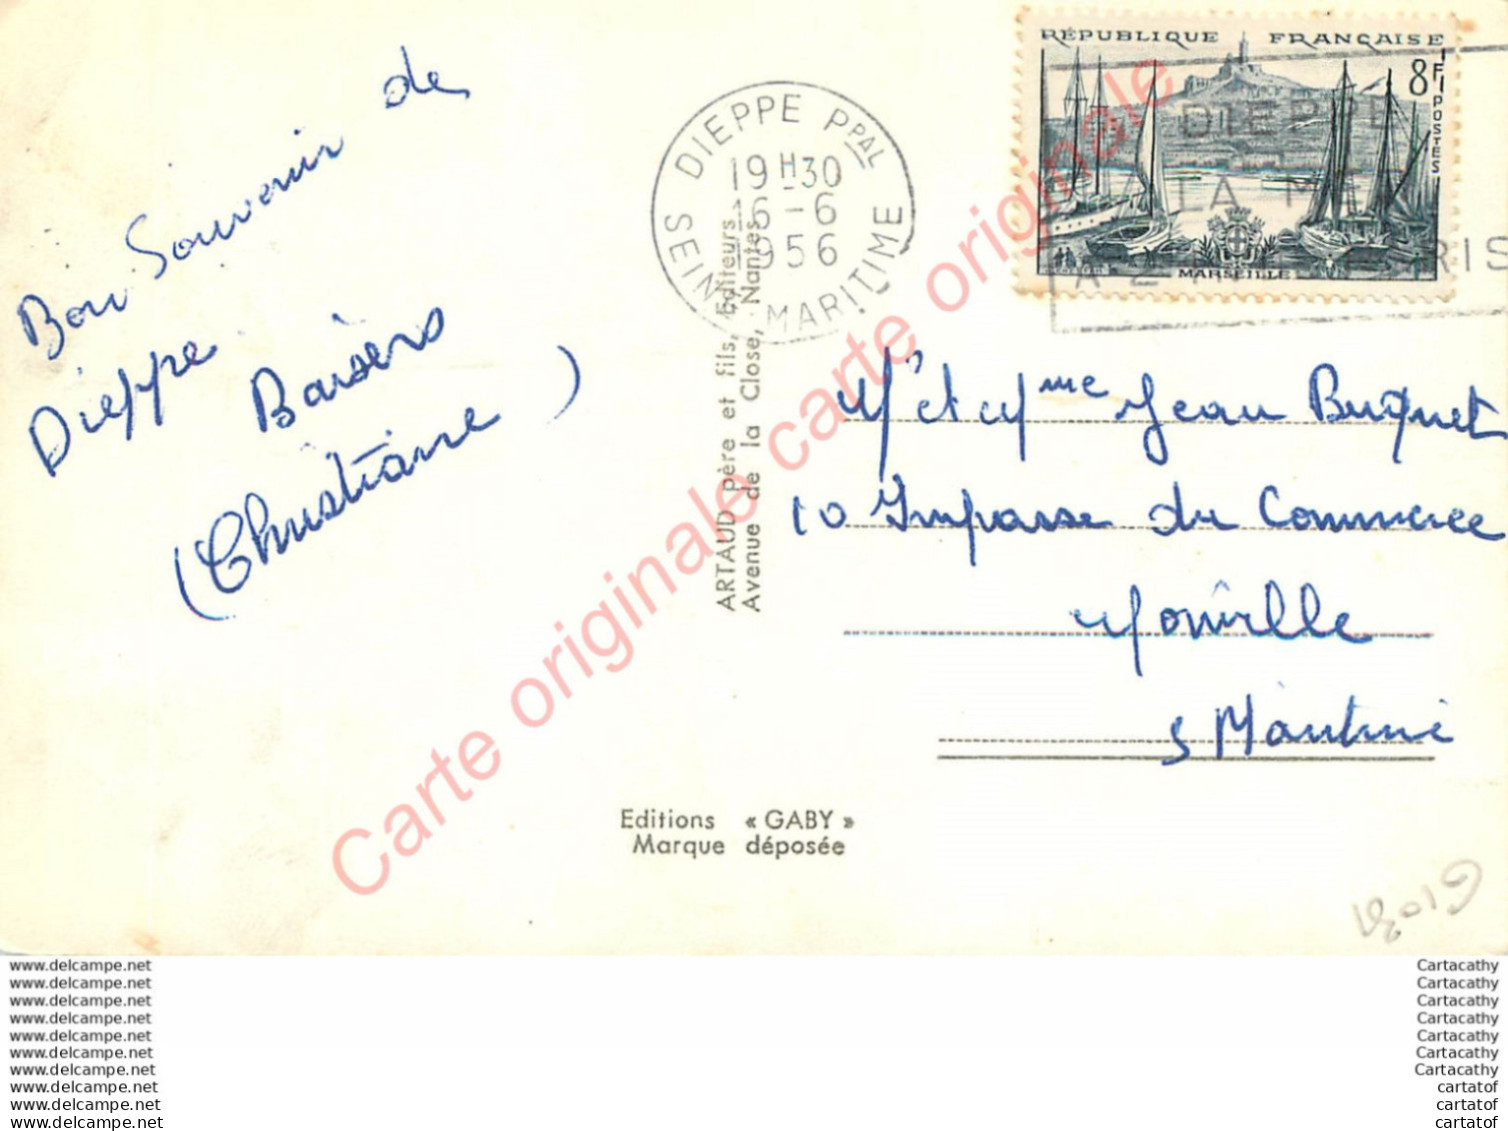 Bon Souvenir de
Dieppe
Baisers
(Christiane)
DIEPPE PPAL
19H30
16-6
1956
SEINE MARITIME
RÉPUBLIQUE FRANÇAISE
8F
POSTES
MARSEILLE
DIEPPE
LA M
A 2 RIS
ARTAUD père et fils, Éditeurs
Avenue de la Close, Nantes
Mr et Mme Jean Buquet
10 Impasse du Commerce
Monville
S Maritime
Editions « GABY »
Marque déposée
Carte originale carte originale
www.delcampe.net
www.delcampe.net
www.delcampe.net
www.delcampe.net
www.delcampe.net
www.delcampe.net
www.delcampe.net
www.delcampe.net
www.delcampe.net
www.delcampe.net
Cartacathy
Cartacathy
Cartacathy
Cartacathy
Cartacathy
Cartacathy
Cartacathy
cartatof
cartatof
cartatof